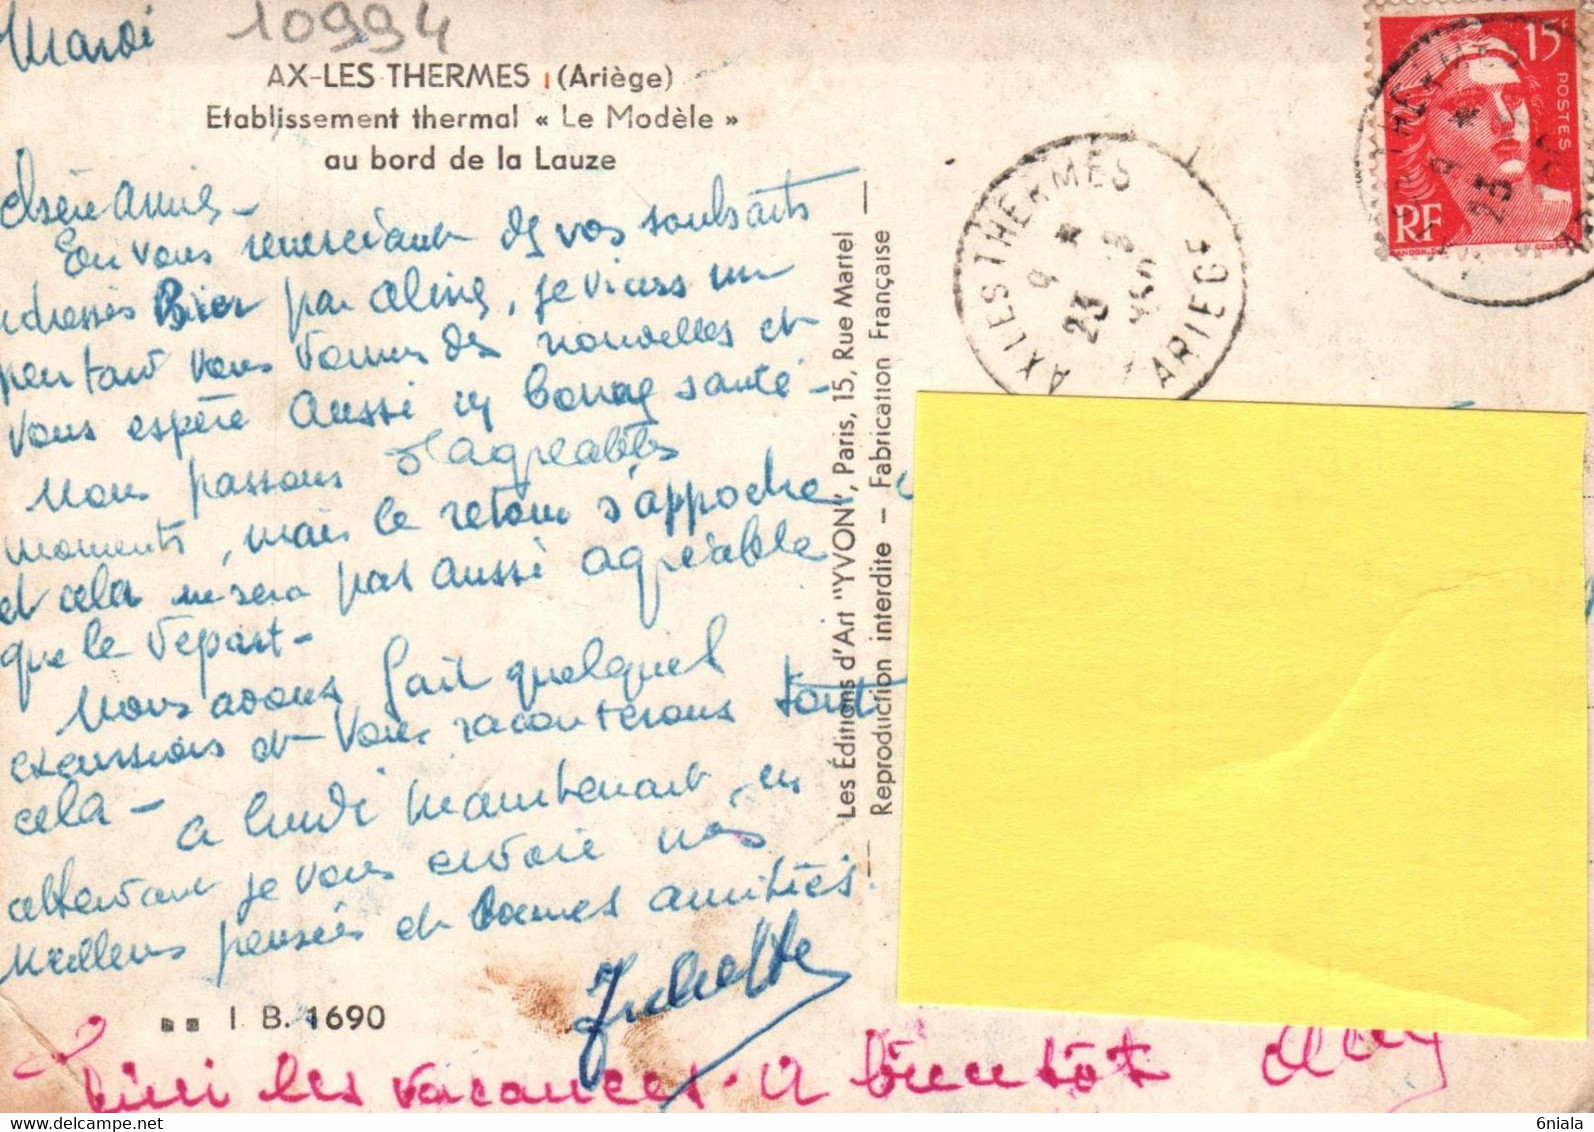 Mardi
10994
AX-LES-THERMES (Ariège)
Etablissement thermal « Le Modèle »
au bord de la Lauze
Chère Amie -
En vous remerciant de vos souhaits
adressés Bier par Aline, je viens un
peu tard vous donner des nouvelles et
vous espère aussi en bonne santé -
Nous passons d'agréables
moments, mais le retour s'approche
et cela ne sera pas aussi agréable
que le départ -
Nous avons fait quelques
excursions et vous raconterons tout
cela -
A lundi maintenant, en
attendant je vous envoie nos
meilleurs pensées et bonnes amitiés.
Juliette
I. B. 1690
Fini les vacances. A bientôt Aline
Les Éditions d'Art "YVON", Paris, 15, Rue Martel
Reproduction interdite - Fabrication Française
AX LES THERMES
9 * 23
ARIEGE
15F
POSTES
RF
6niala